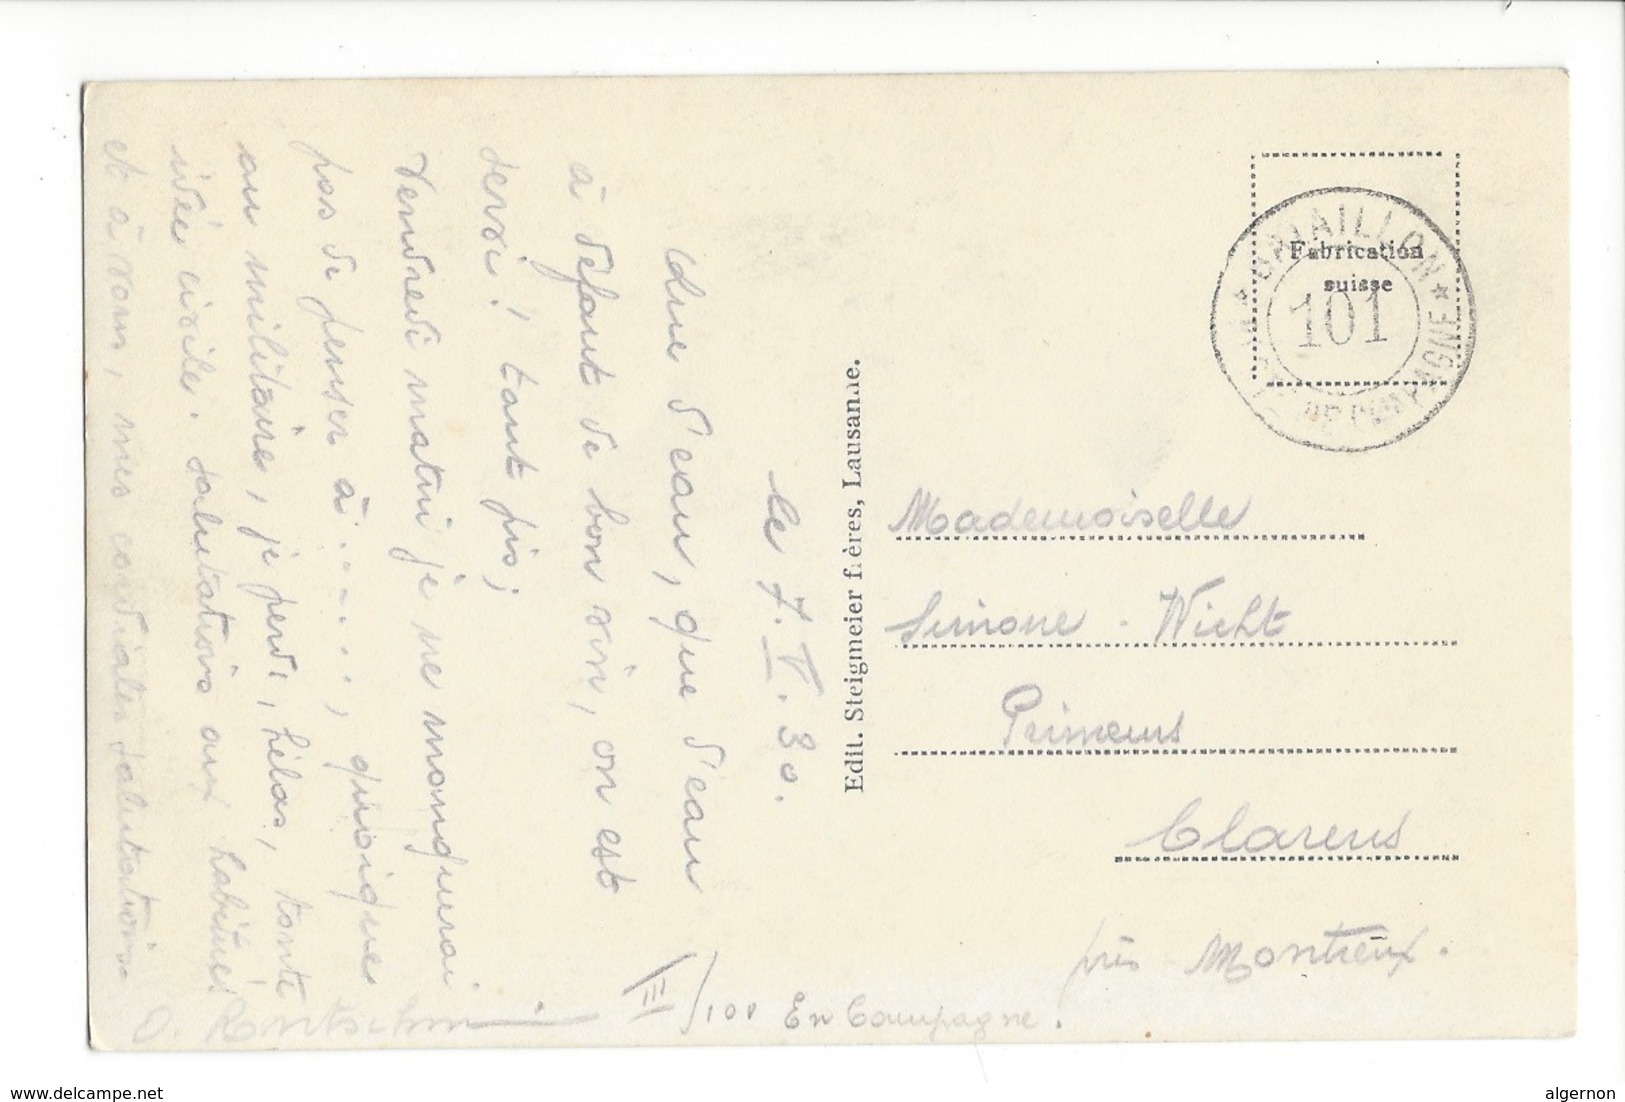 le 7. V. 30.
que d'eau, que d'eau
à défaut de bon vin, on est
servi! tant pis;
Vendredi matin je ne manquerai
pas de penser à ......, quoique
au militaire, je perds, hélas, toute
idée civile. Salutations aux habitués
et à vous, mes cordiales salutations.
III/101 En Campagne.
Edit. Steigmeier frères, Lausanne.
Fabrication
suisse
* BATAILLON *
101
POSTE DE CAMPAGNE
Mademoiselle
Simone Wicht
Primeurs
Clarens
près Montreux.
www.delcampe.net
algernon